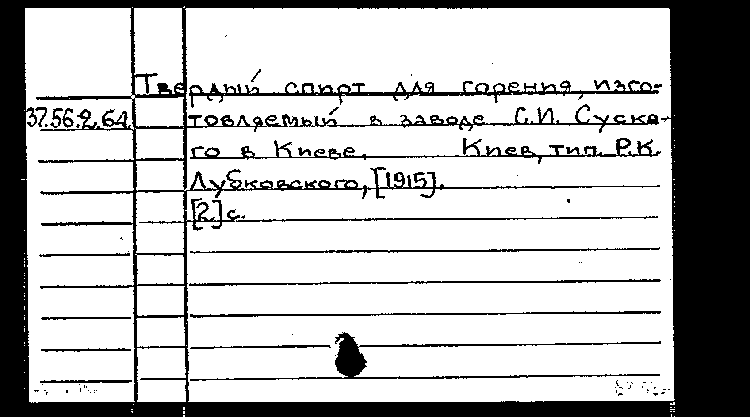 Твердый спирт для горения, изго-
37.56.2.64. товляемый в заводе С.И. Суска-
го в Киеве. Киев, тип. Р.К.
Лубковского, [1915].
[2] с.